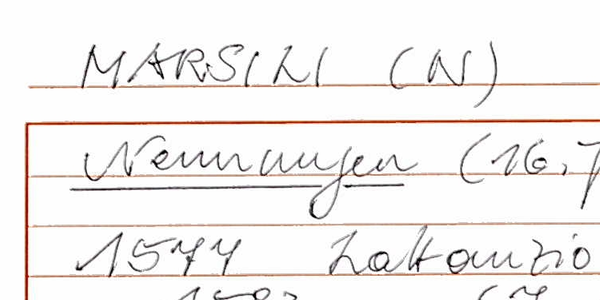 MARSILI (N)
Nennungen (16,7
1577 Lattanzio